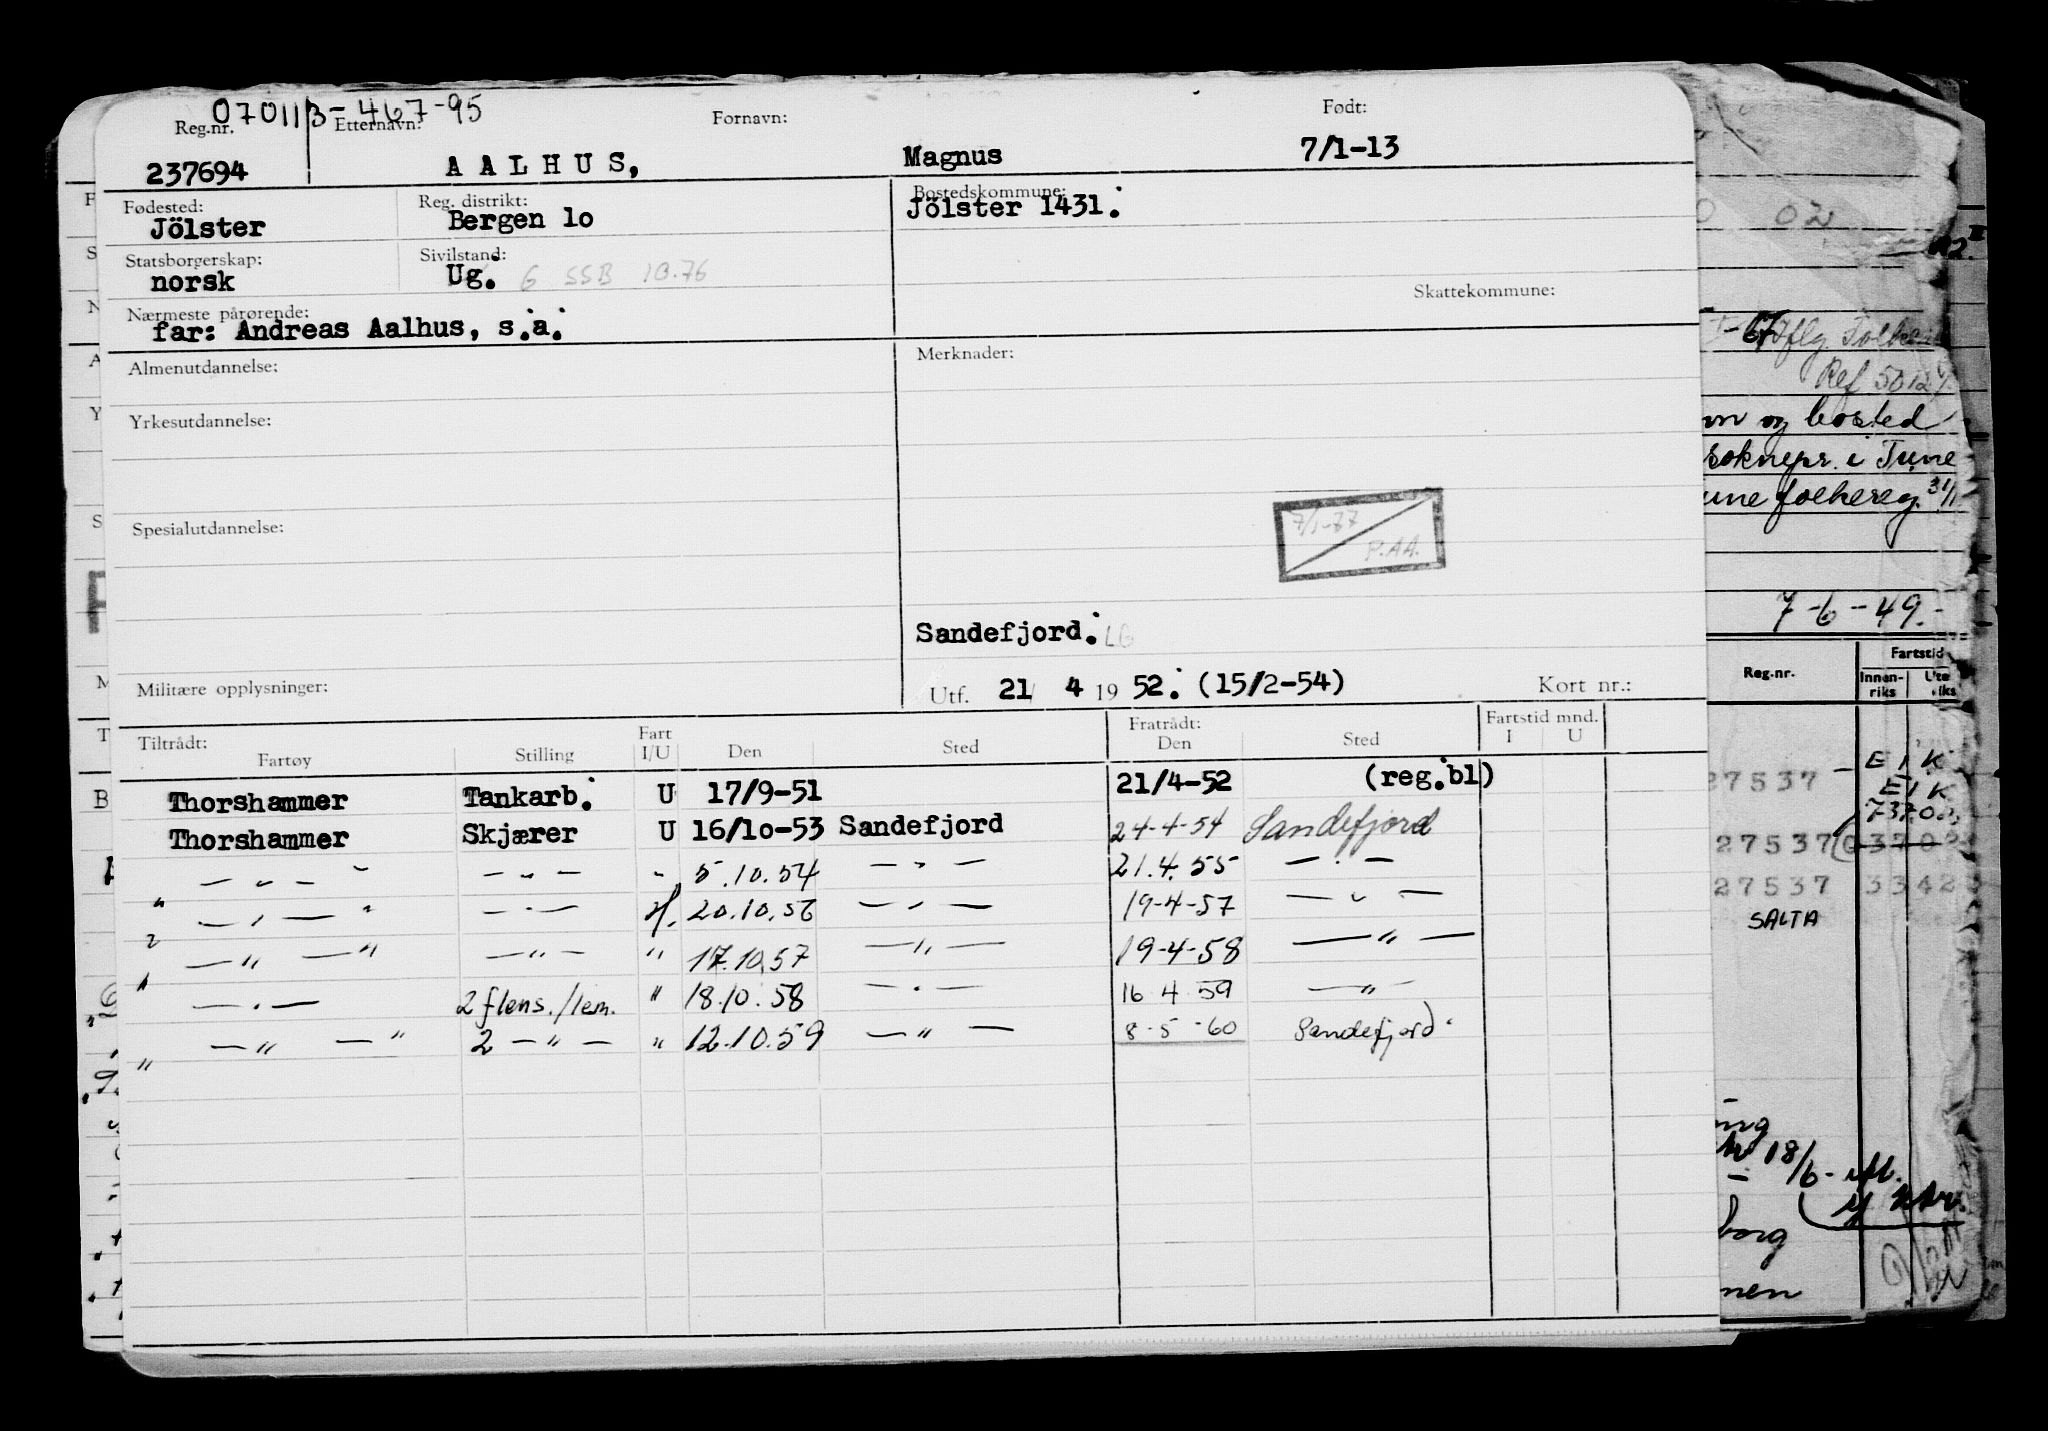 070113-467-95
Reg.nr. Etternavn: Fornavn: Født:
237694 AALHUS, Magnus 7/1-13
Fødested: Reg. distrikt: Bostedskommune:
Jölster Bergen 1o Jölster 1431.
Statsborgerskap: Sivilstand:
norsk Ug. G SSB 10.76
Nærmeste pårørende: Skattekommune:
far: Andreas Aalhus, s.a.
Almenutdannelse: Merknader:
Yrkesutdannelse:
Spesialutdannelse:
7/1-77
P.AA.
Sandefjord. LG
Militære opplysninger: Utf. 21/ 4 19 52. (15/2-54) Kort nr.:
Tiltrådt: Fart Fratrådt: Fartstid mnd.
Fartøy Stilling I/U Den Sted Den Sted I U
Thorshammer Tankarb. U 17/9-51 21/4-52 (reg.bl)
Thorshammer Skjærer U 16/1o-53 Sandefjord 24-4-54 Sandefjord
— " — " — " — " 5.10.54 — " — 21.4.55 — " —
" — " — " — " — 20.10.56 — " — 19-4-57 — " —
" — " — " — " — " 17.10.57 — " — 19-4-58 — " —
" — " — 2 flens./lem. " 18.10.58 — " — 16 4 59 — " —
" — " — " 2 — " — " 12.10.59 — " — 8-5-60 Sandefjord
02
Ref 5012
og bosted
soknepr. i Tune
folkereg. 31/1
7-6-49.-
Reg.nr. Fartstid
Innen-riks
27537 – E I K
E I K
27537
27537 3342
SALTA
18/6-
borg